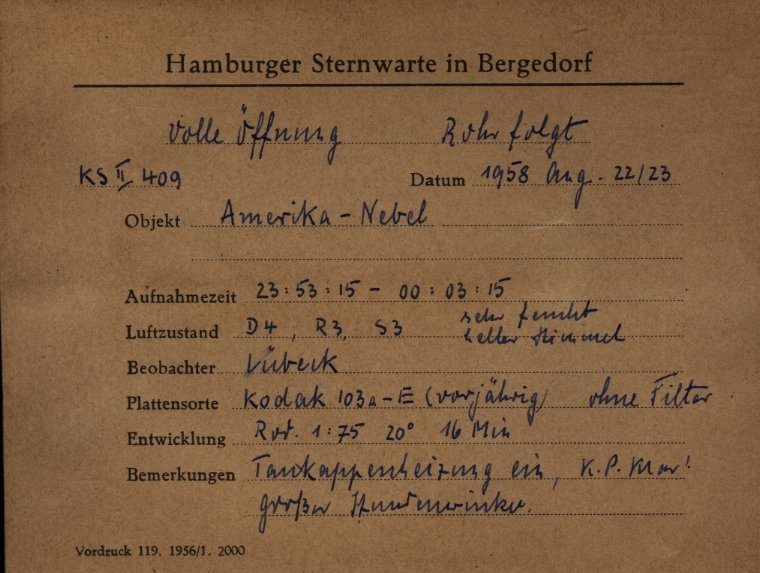 Hamburger Sternwarte in Bergedorf
Volle Öffnung Rohr folgt
KS II 409 Datum 1958 Aug. 22/23
Objekt Amerika-Nebel
Aufnahmezeit 23:53:15 - 00:03:15
sehr feucht
Luftzustand D4, R3, S3 heller Himmel
Beobachter Lübeck
Plattensorte Kodak 103a-E (vorjährig) ohne Filter
Entwicklung Rod. 1:75 20° 16 Min
Bemerkungen Taukappenheizung ein, K.P. klar!
großer Stundenwinkel.
Vordruck 119. 1956/1. 2000